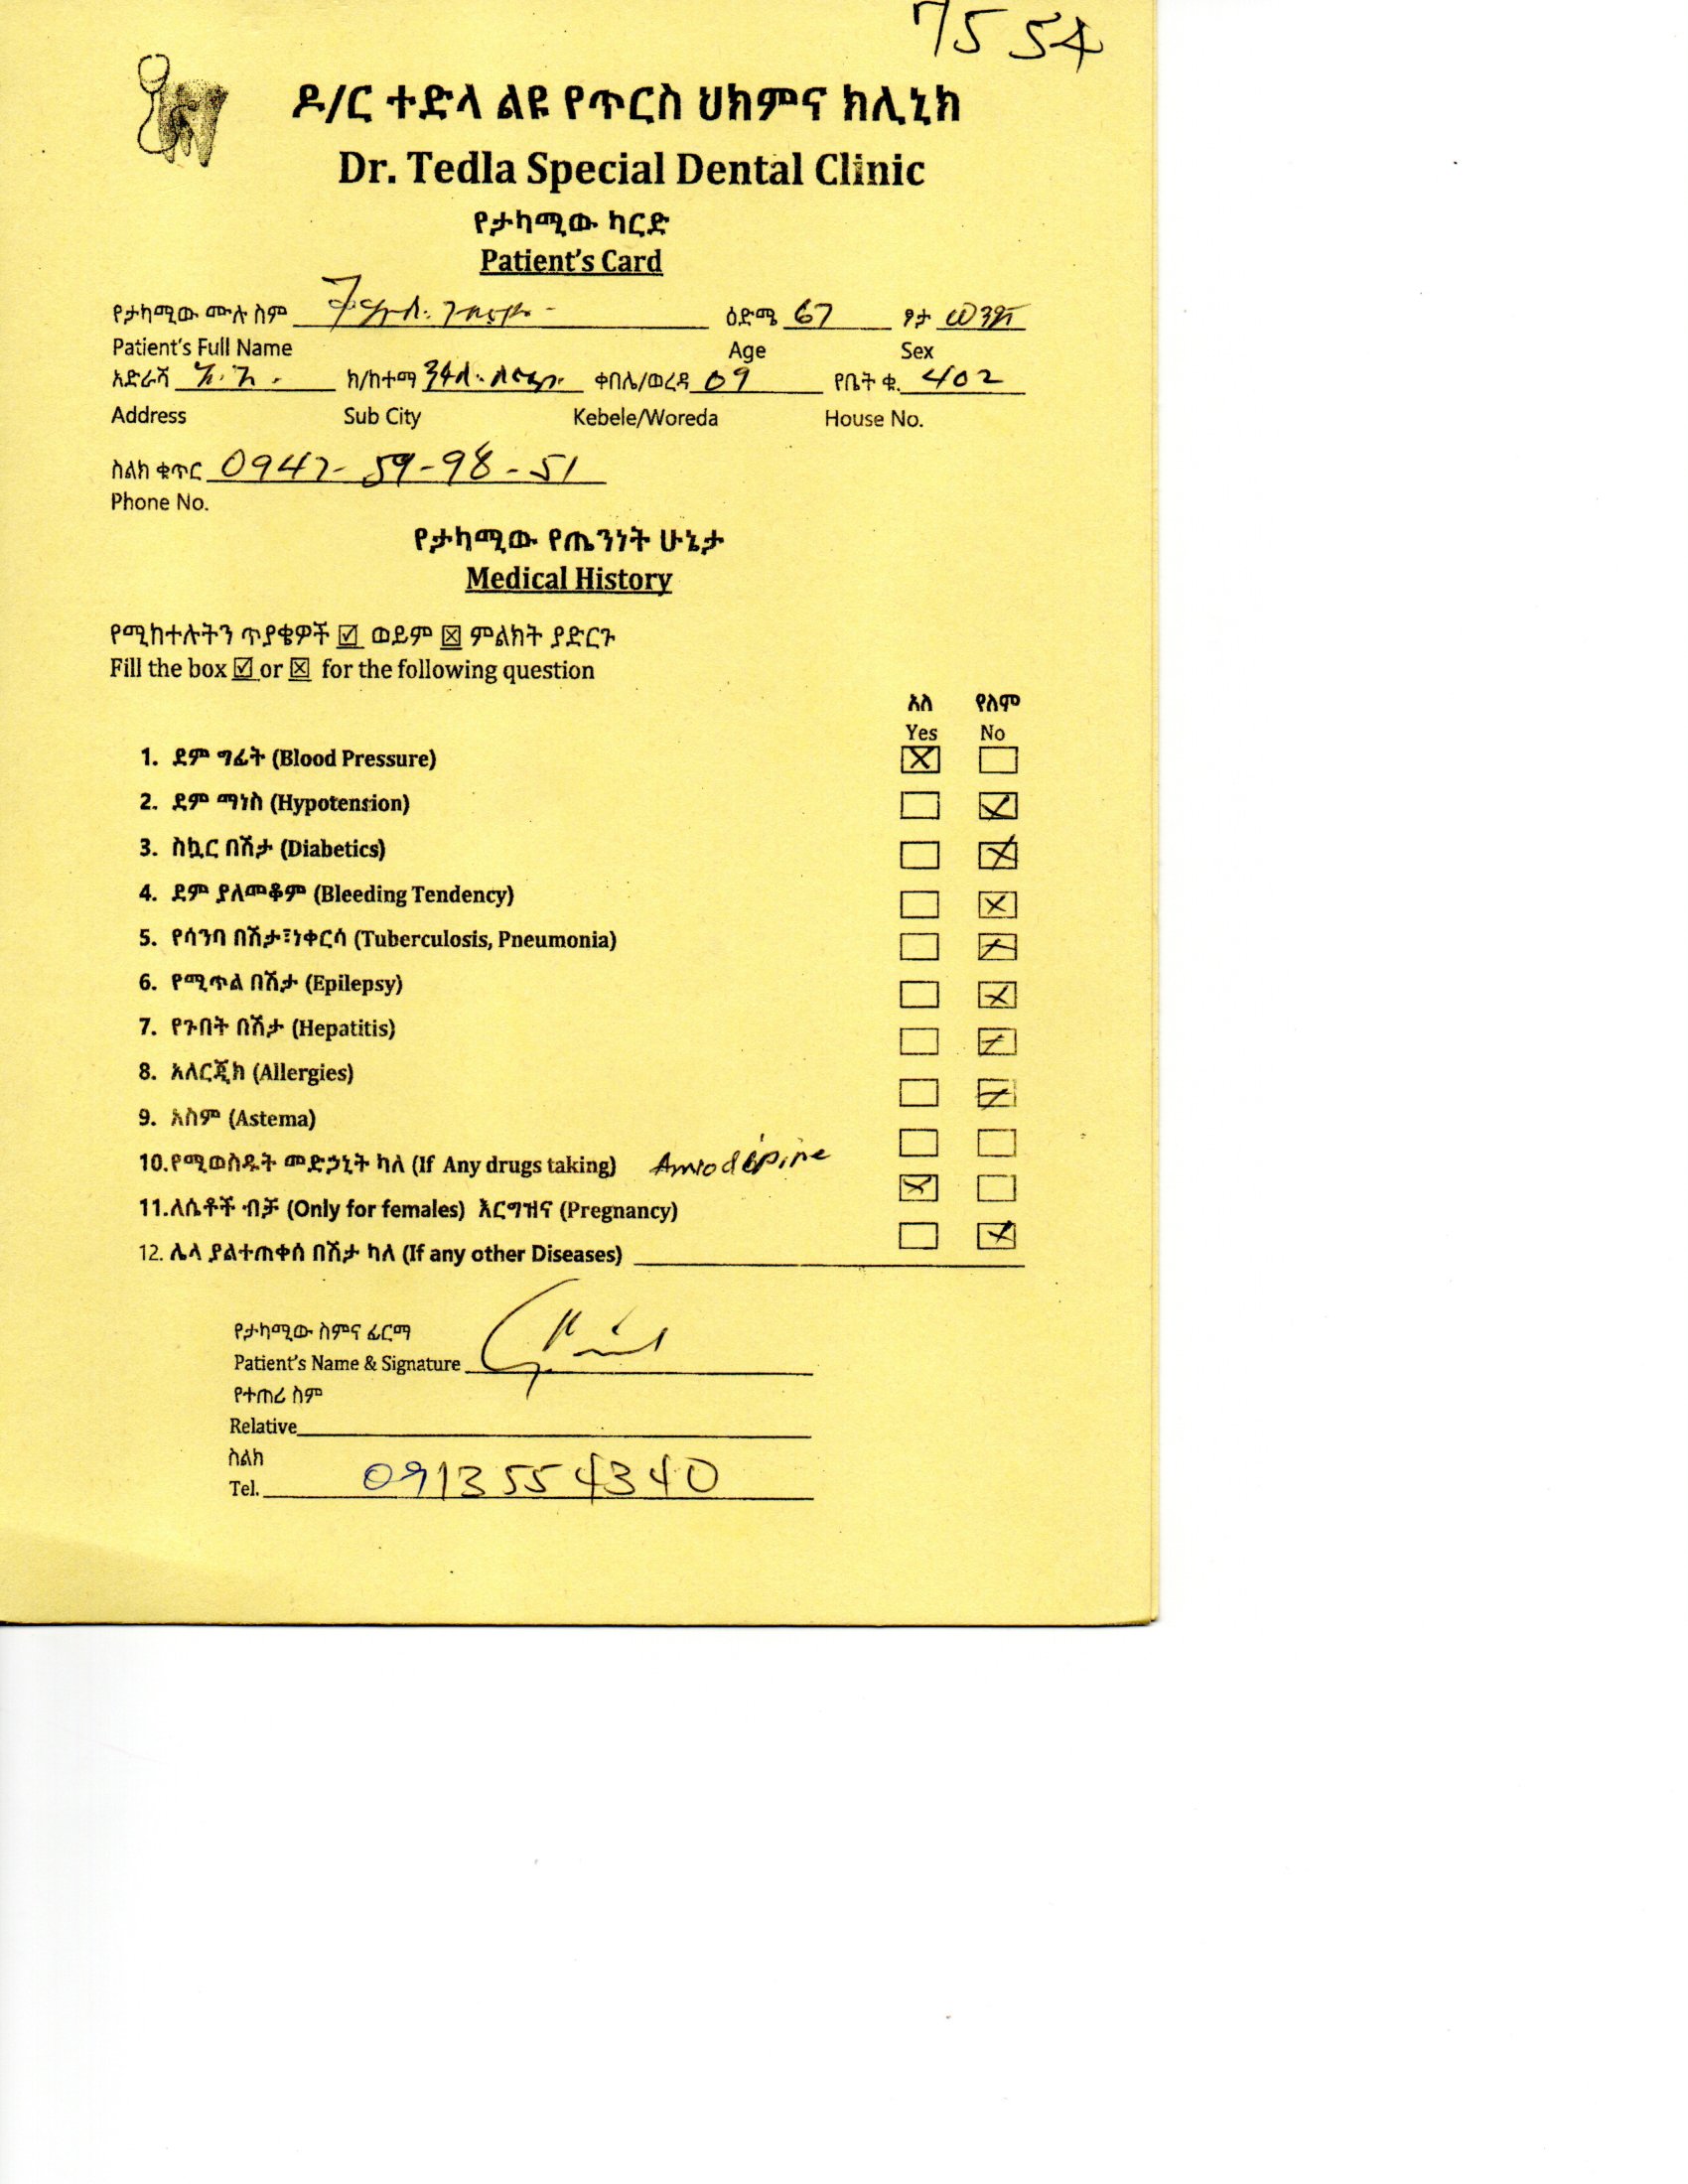 7554
ዶ/ር ተድላ ልዩ የጥርስ ህክምና ክሊኒክ
Dr. Tedla Special Dental Clinic
የታካሚው ካርድ
Patient's Card
የታካሚው ሙሉ ስም ዕድሜ 67 ፆታ ወንድ
Patient's Full Name Age Sex
አድራሻ አ.አ. ክ/ከተማ ቀበሌ/ወረዳ 09 የቤት ቁ. 402
Address Sub City Kebele/Woreda House No.
ስልክ ቁጥር 0947-59-98-51
Phone No.
የታካሚው የጤንነት ሁኔታ
Medical History
የሚከተሉትን ጥያቄዎች ☑ ወይም ☒ ምልክት ያድርጉ
Fill the box ☑ or ☒ for the following question
አለ የለም
Yes No
1. ደም ግፊት (Blood Pressure)
2. ደም ማነስ (Hypotension)
3. ስኳር በሽታ (Diabetics)
4. ደም ያለመቆም (Bleeding Tendency)
5. የሳንባ በሽታ፣ነቀርሳ (Tuberculosis, Pneumonia)
6. የሚጥል በሽታ (Epilepsy)
7. የጉበት በሽታ (Hepatitis)
8. አለርጂክ (Allergies)
9. አስም (Astema)
10.የሚወስዱት መድኃኒት ካለ (If Any drugs taking) Amlodipine
11.ለሴቶች ብቻ (Only for females) እርግዝና (Pregnancy)
12. ሌላ ያልተጠቀሰ በሽታ ካለ (If any other Diseases)
የታካሚው ስምና ፊርማ
Patient's Name & Signature
የተጠሪ ስም
Relative
ስልክ
Tel. 0913554340